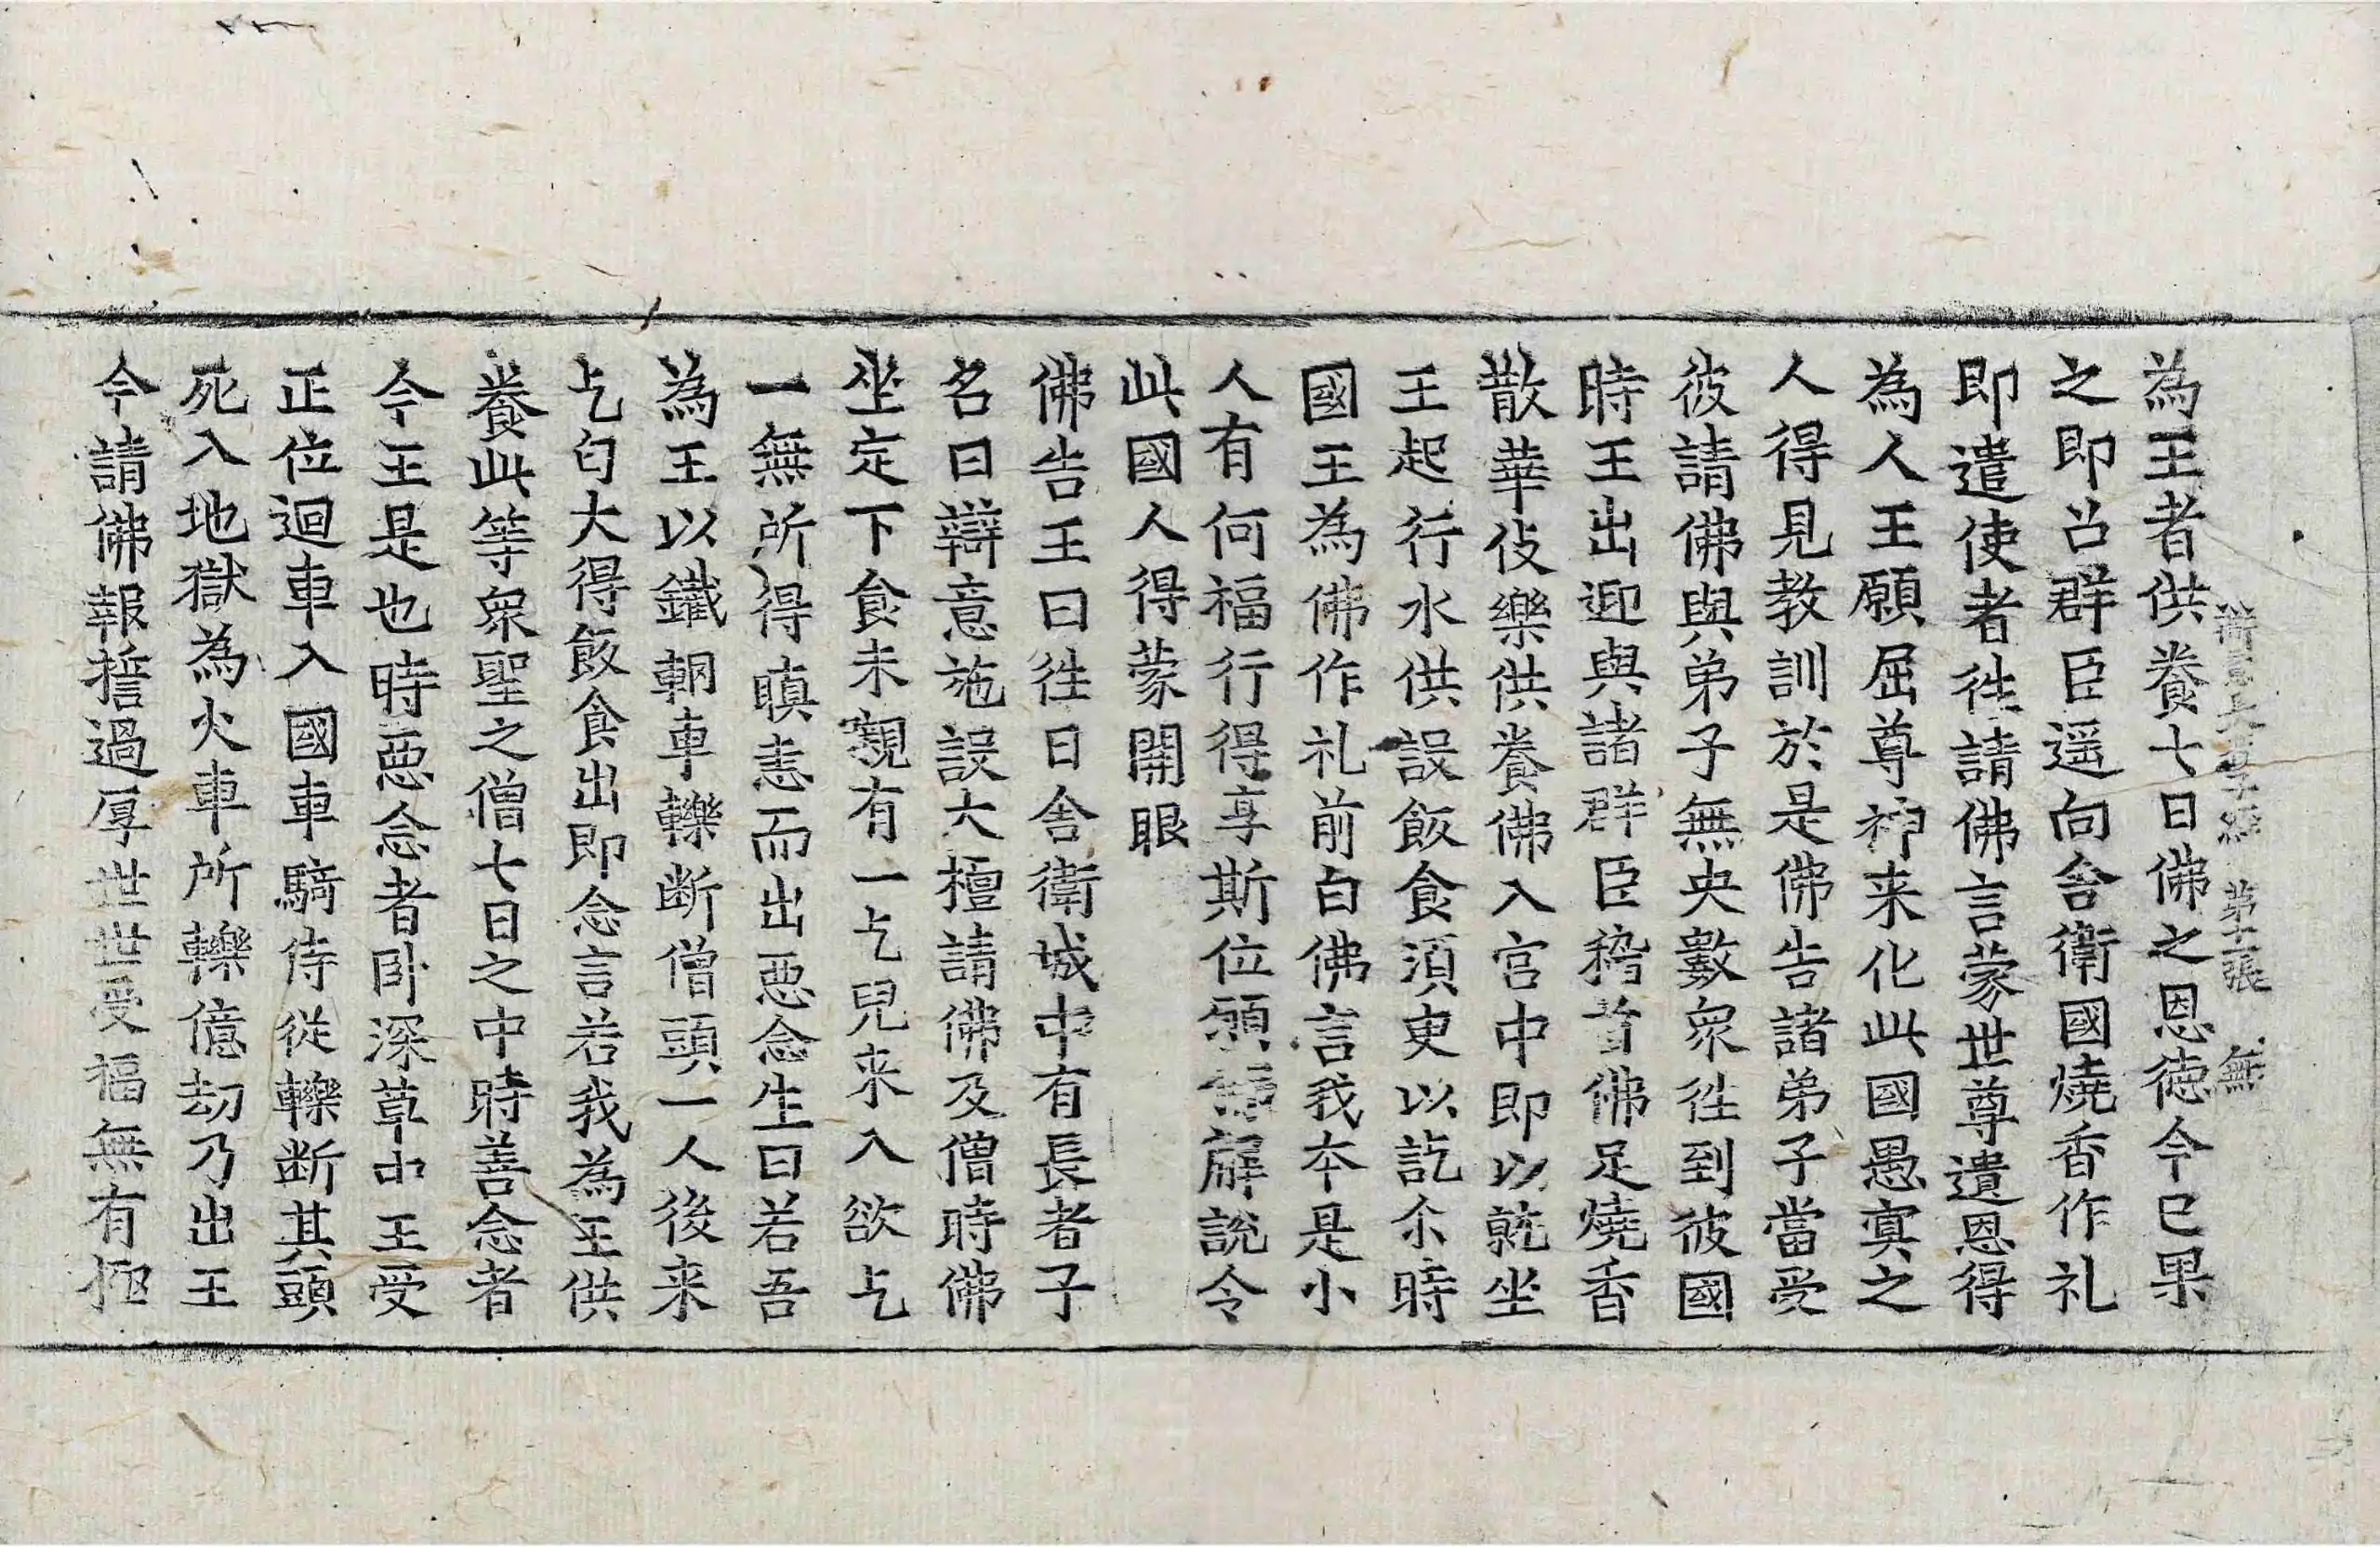 為王者供養七日佛之恩德今已果
辯意長者子經 第十一張 無
之即召群臣遥向舍衛國燒香作礼
即遣使者往請佛言蒙世尊遺恩得
為人王願屈尊神来化此國愚㝠之
人得見教訓於是佛告諸弟子當受
彼請佛與弟子無央數衆往到彼國
時王出迎與諸群臣稽首佛足燒香
散華伎樂供養佛入宫中即以就坐
王起行水供設飯食湏臾以訖尒時
國王為佛作礼前白佛言我本是小
人有何福行得享斯位願解說令
此國人得蒙開眼
佛告王曰往日舍衛城中有長者子
名曰辯意施設大檀請佛及僧時佛
坐定下食未㒋有一乞兒来入欲乞
一無所得瞋恚而出惡念生曰若吾
為王以鐵輞車轢断僧頭一人後来
乞匃大得飯食出即念言若我為王供
養此等衆聖之僧七日之中時善念者
今王是也時惡念者卧深草中王受
正位迴車入國車騎侍從轢断其頭
死入地獄為火車所轢億劫乃出王
今請佛報誓過厚世世受福無有極